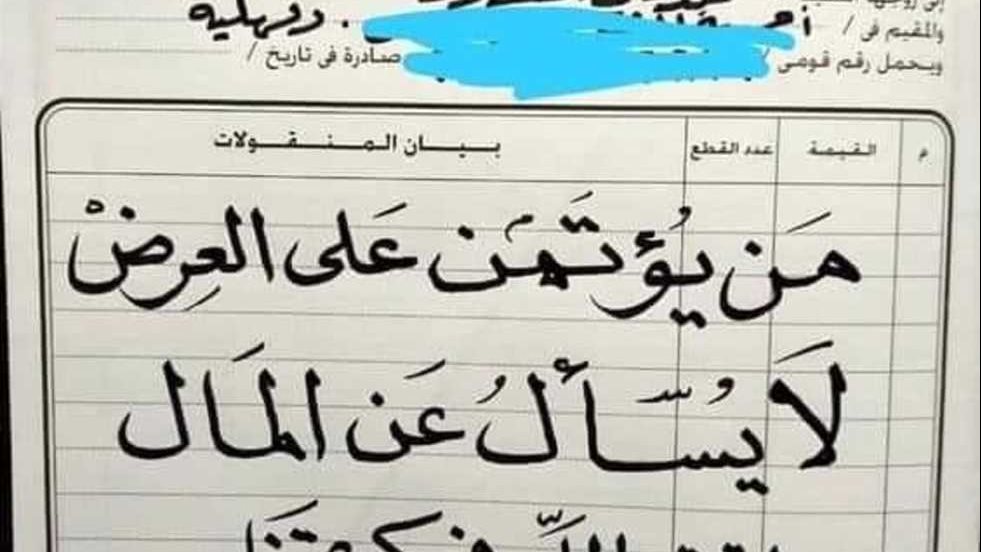 إلى زوجته
والمقيم فى / دقهلية
ويحمل رقم قومى / صادرة فى تاريخ /
م القيمة عدد القطع بيان المنقولات
مَن يُؤتَمَن عَلى العِرضْ
لَا يُسّأَلُ عَن المَال